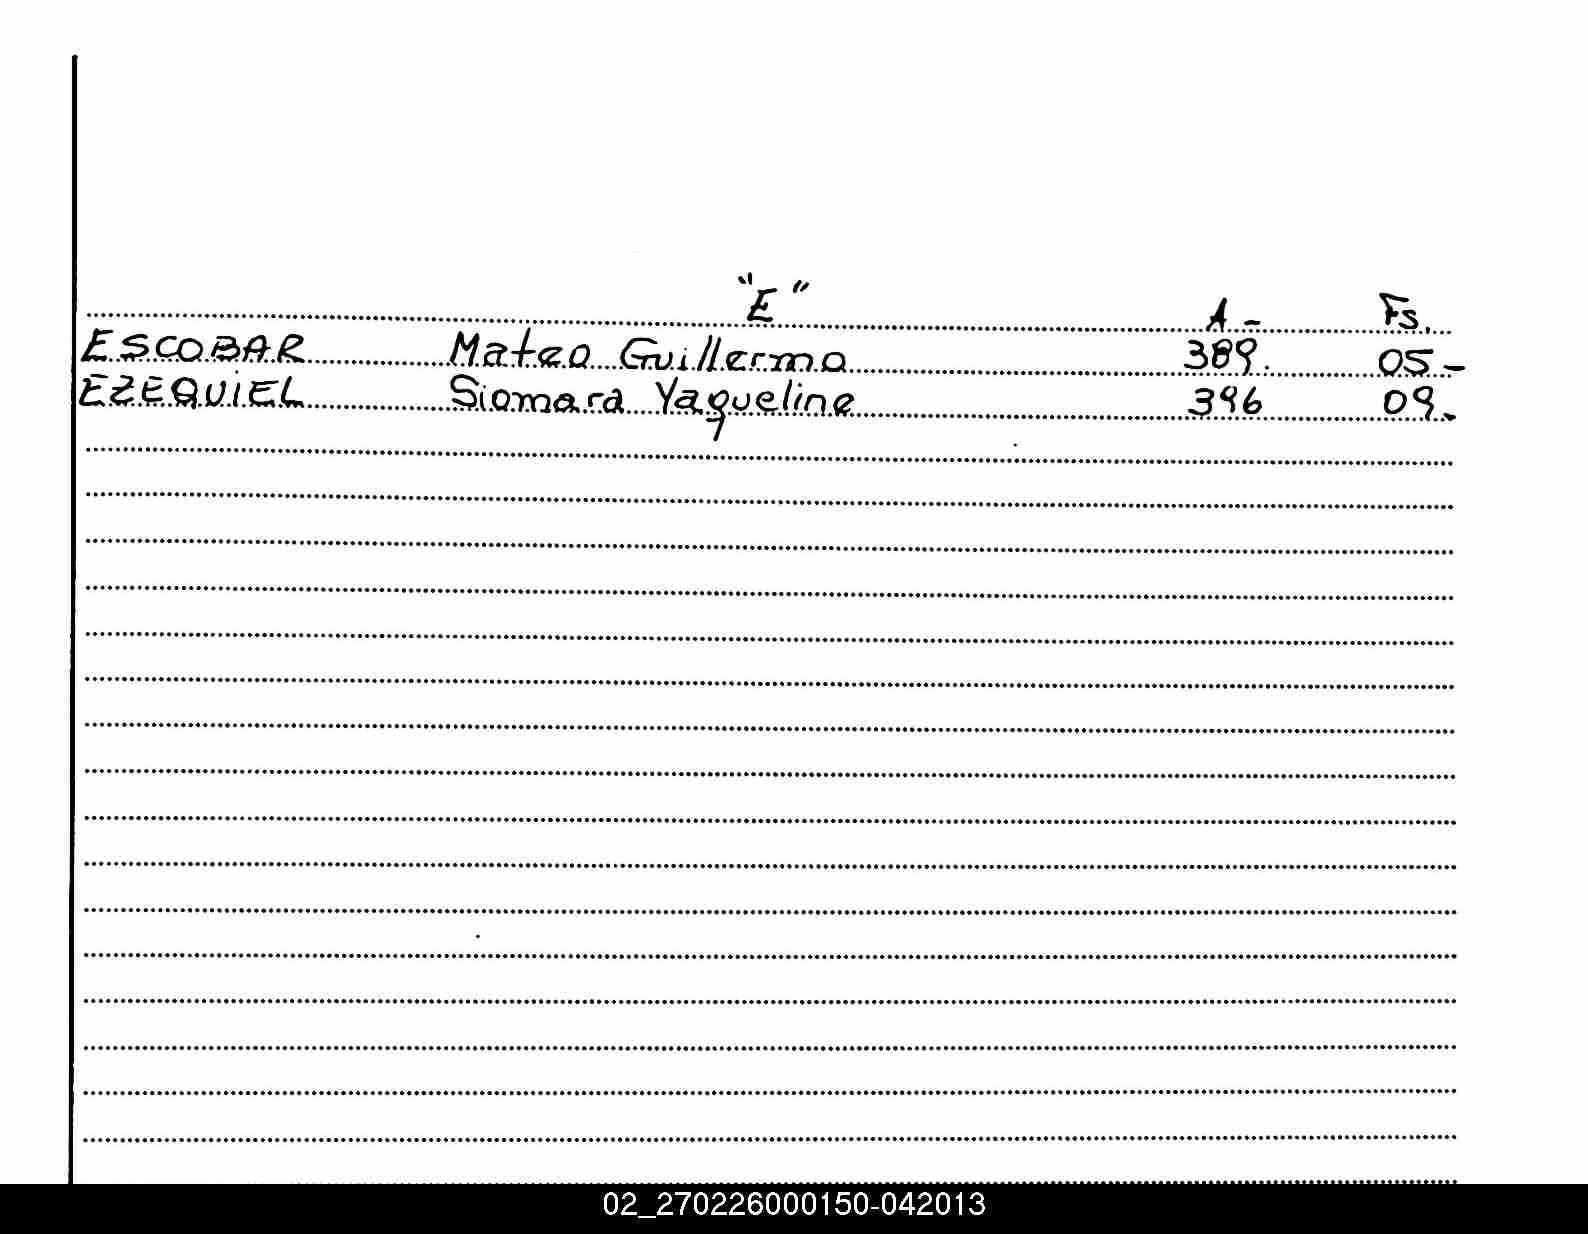 "E"
A - Fs.
ESCOBAR Mateo Guillermo 389. 05 -
EZEQUIEL Siomara Yaqueline 396 09 -
02_270226000150-042013